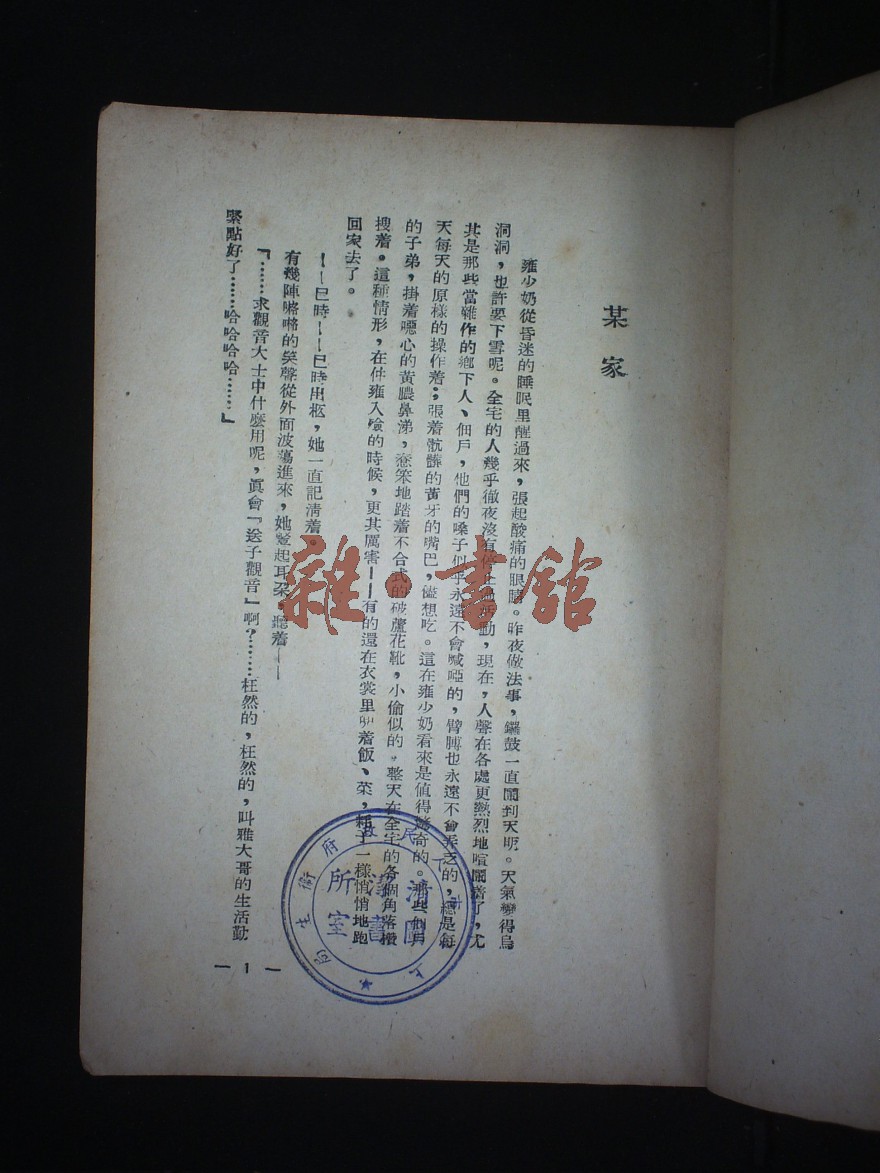 某家
雍少奶從昏迷的睡眠里醒過來，張起酸痛的眼睛。昨夜做法事，鑼鼓一直鬧到天明。天氣變得烏
洞洞，也許要下雪呢。全宅的人幾乎徹夜沒有停止過活動，現在，人聲在各處更熱烈地喧鬧着了，尤
其是那些當雜作的鄉下人、佃戶，他們的嗓子似乎永遠不會喊啞的，臂膊也永遠不會弄乏的，總是每
天每天的原樣的操作着；張着骯髒的黃牙的嘴巴，儘想吃。這在雍少奶看來是值得驚奇的。那些佃戶
的子弟，掛着噁心的黃膿鼻涕，憃笨地踏着不合式的破蘆花靴，小偷似的，整天在全宅的各個角落攢
搜着。這種情形，在仲雍入殮的時候，更其厲害——有的還在衣裳里 着飯、菜， 子一樣悄悄地跑
回家去了。
——巳時——巳時出柩，她一直記清着。
有幾陣咯咯的笑聲從外面波蕩進來，她豎起耳朵，聽着——
『……求觀音大士中什麼用呢，眞會『送子觀音』啊？……枉然的，枉然的，叫雅大哥的生活勤
緊點好了……哈哈哈哈……』
— 1 —
雜·書館
上 市人民政府衛生局
清 圖
所 書
室